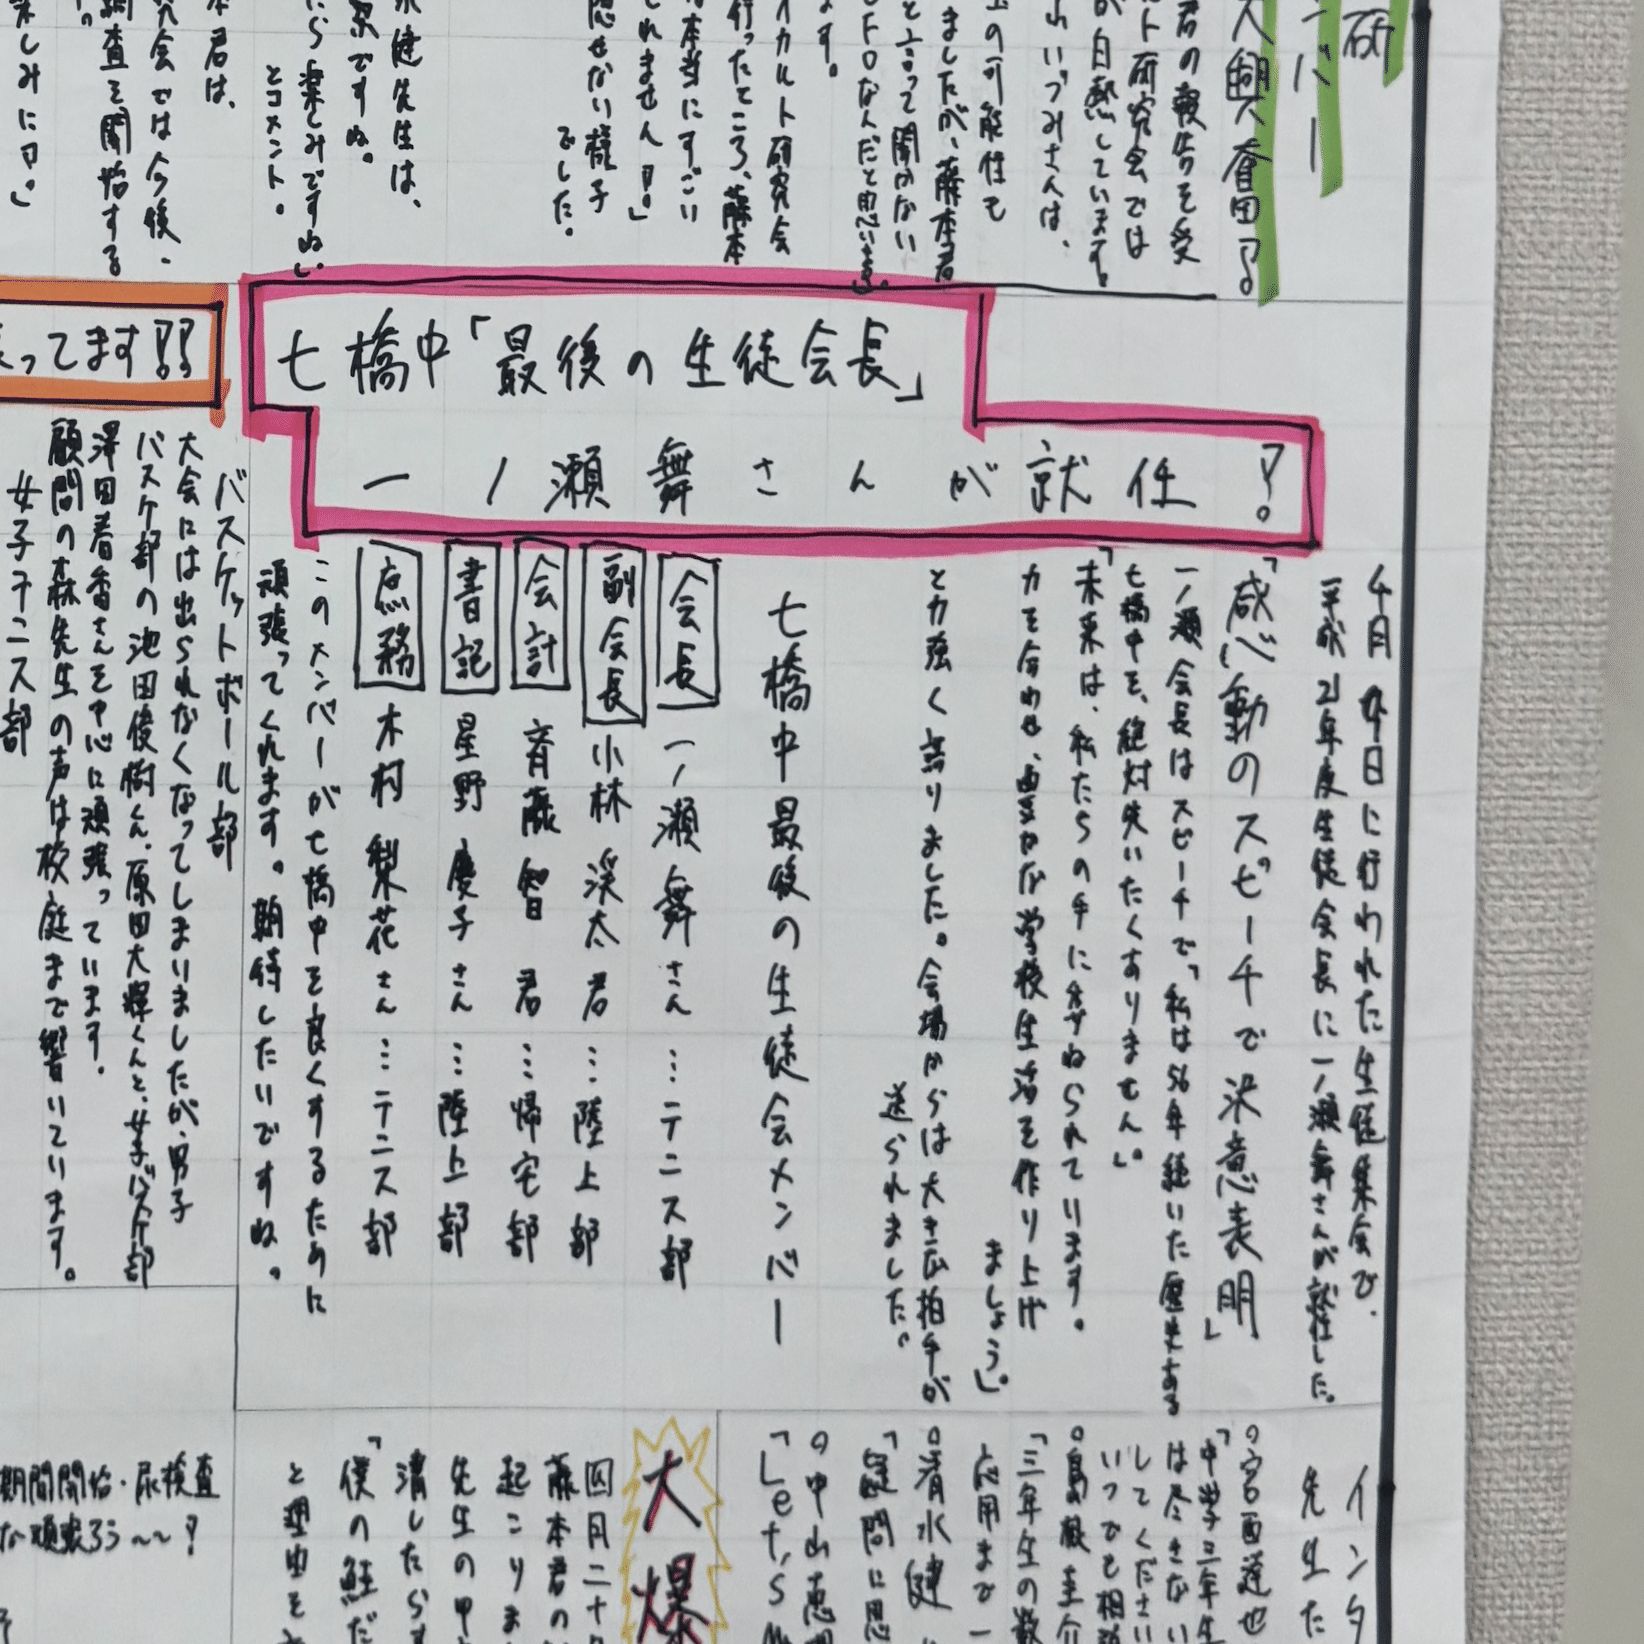 研
ンバー
大興奮!
君の報告を受
ルト研究会では
が白熱しています。
山いづみさんは、
の可能性も
ましたが、藤本君
と言って聞かない
UFOなんだと思います」。
ます。
オカルト研究会
行ったところ、藤本
本当にすごい
しれません!」
隠せない様子
でした。
健先生は、
ですね。
たら楽しみですね」
とコメント。
本君は、
究会では今後、
調査を開始する
楽しみに!」
七橋中「最後の生徒会長」
一ノ瀬舞さんが就任!
4月9日に行われた生徒集会で、
平成21年度生徒会長に一ノ瀬舞さんが就任した。
「感動のスピーチで決意表明」
一ノ瀬会長はスピーチで「私は56年続いた歴史ある
七橋中を、絶対失いたくありません。」
「未来は、私たちの手に委ねられています。
力を合わせ、豊かな学校生活を作り上げ
ましょう」。
と力強く語りました。会場からは大きな拍手が
送られました。
七橋中最後の生徒会メンバー
会長 一ノ瀬舞さん…テニス部
副会長 小林渓太君…陸上部
会計 斉藤智君…帰宅部
書記 星野慶子さん…陸上部
庶務 木村梨花さん…テニス部
このメンバーが七橋中を良くするために
頑張ってくれます。期待したいですね。
ってます!!
バスケットボール部
大会には出られなくなってしまいましたが、男子
バスケ部の池田俊樹くん、原田大輝くんと、女子バスケ部
澤田春香さんを中心に頑張っています。
顧問の森先生の声は校庭まで響いています。
女子テニス部
インタ
先生た
○宮西達也
「中学三年生
は尽きない
してください
いつでも相談
○島根圭介
「三年生の数
応用まで一
○清水健
「疑問に思
○中山恵
「Let's
大爆
四月二十
藤本君の
起こりま
先生の甲
清したらす
「僕の鮭だ
と理由を
期間開始・尿検査
な頑張ろう~~!